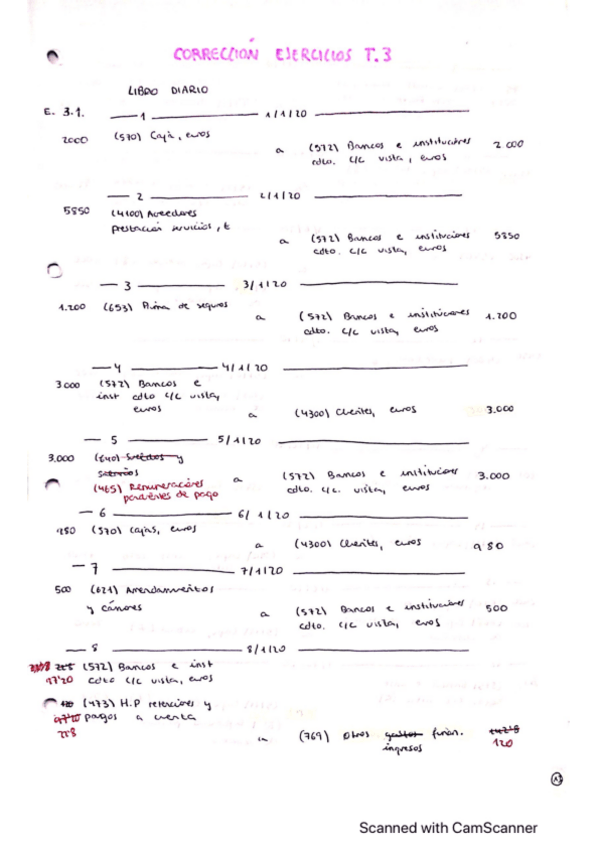 CORRECCIÓN EJERCICIOS T.3
LIBRO DIARIO
E. 3.1. 1 1/1/20
2000 (570) Caja, euros
a (572) Bancos e instituciones 2 000
cdto. c/c vista, euros
2 2/1/20
5850 (4100) Acreedores
prestación servicios, €
a (572) Bancos e instituciones 5850
cdto. c/c vista, euros
3 3/1/20
1.200 (653) Prima de seguros
a (572) Bancos e instituciones 1.200
cdto. c/c vista, euros
4 4/1/20
3.000 (572) Bancos e
inst cdto c/c vista,
euros
a (4300) Clientes, euros 3.000
5 5/1/20
3.000 (640) Sueldos y
salarios
a (572) Bancos e instituciones 3.000
(465) Remuneraciones cdto. c/c. vista, euros
pendientes de pago
6 6/1/20
980 (570) Cajas, euros
a (4300) Clientes, euros 980
7 7/1/20
500 (621) Arrendamientos
y cánones
a (572) Bancos e instituciones 500
cdto. c/c vista, euros
8 8/1/20
(572) Bancos e inst
97'20 cdto c/c vista, euros
(473) H.P retenciones y
pagos a cuenta
22'8
a (769) Otros gastos finan.
ingresos 120
Scanned with CamScanner